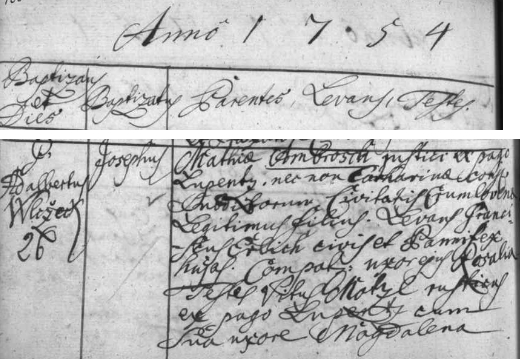 Anno 1754
Baptizans et Dies
Baptizatus
Parentes Levans, Testes
P. Adalbertus Wlczek 26
Josephus
Mathiæ Ambrosch justici ex pago
Lupentz. nec non Catharinæ conjugis
Civitatis Crumlovena
Legitimus filius. Levans Franci
scus civis et Pannifex
hujas. Compat: uxor ejus Rosalia
Testes Vitus Motzl rusticus
ex pago Lupentz cum
sua uxore Magdalena